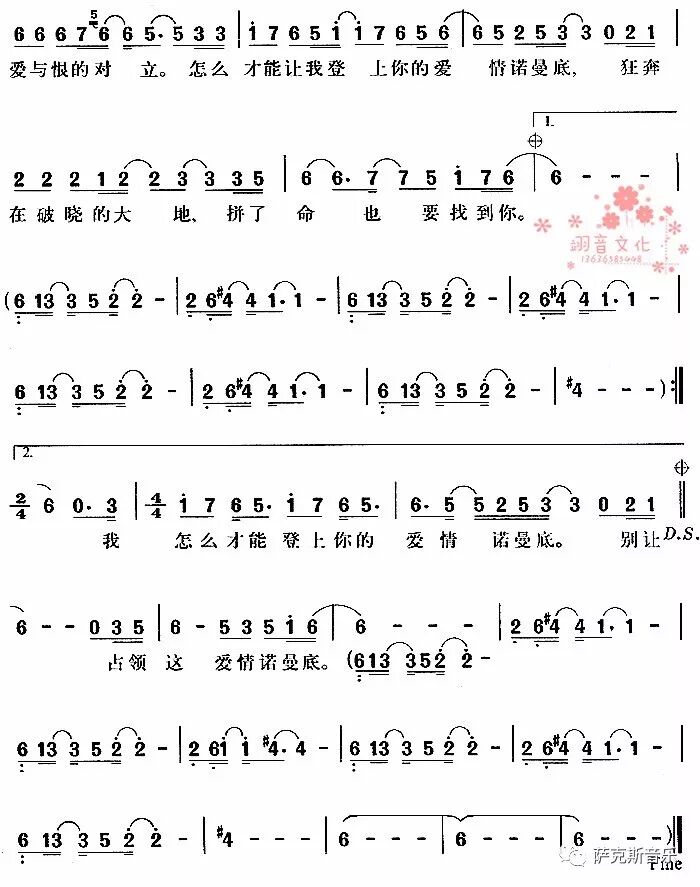 6 6 6 7 6 6 5· 5 3 3 | 1 7 6 5 1 1 7 6 5 6 | 6 5 2 5 3 3 0 2 1 |
爱与恨的对 立。怎么 才能让我登 上你的爱 情诺曼底, 狂奔
1.
2 2 2 1 2 2 3 3 3 5 | 6 6· 7 7 5 1 7 6 | 6 - - - |
在破晓的大 地, 拼了 命 也 要找到你。
翊音文化
13636585448
(6 13 3 5 2 2 - | 2 6 #4 4 1· 1 - | 6 13 3 5 2 2 - | 2 6 #4 4 1· 1 - |
6 13 3 5 2 2 - | 2 6 #4 4 1· 1 - | 6 13 3 5 2 2 - | #4 - - -) :||
2.
2/4 6 0· 3 | 4/4 1 7 6 5· 1 7 6 5· | 6· 5 5 2 5 3 3 0 2 1 ||
我 怎么才能 登上你的 爱 情 诺曼底。 别让 D.S.
6 - - 0 3 5 | 6 - 5 3 5 1 6 | 6 - - - | 2 6 #4 4 1· 1 - |
占领 这 爱情诺曼底。 (6 13 3 5 2 2 -
6 13 3 5 2 2 - | 2 6 1 1 #4· 4 - | 6 13 3 5 2 2 - | 2 6 #4 4 1· 1 - |
6 13 3 5 2 2 - | #4 - - - | 6 - - - | 6 - - - | 6 - - -) ||
萨克斯音乐
Fine